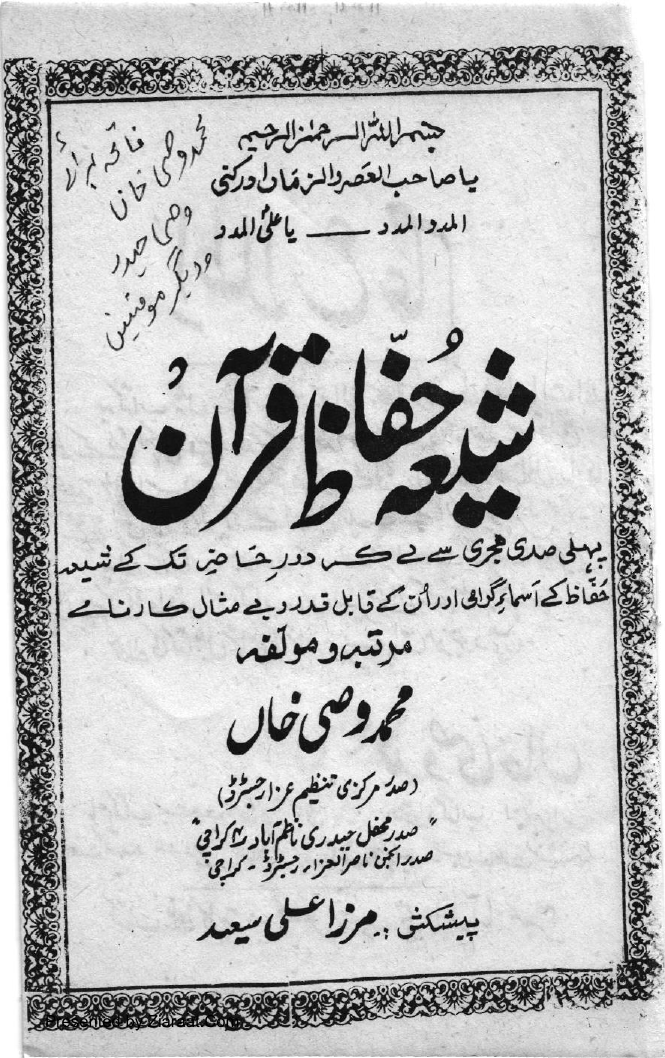 بسم اللہ الرحمٰن الرحیم
یا صاحب العصر والزمان ادرکنی
المدد المدد — یا علیؑ المدد
فاتحہ برائے
محمد وصی خان
وصی حیدر
و دیگر مومنین
شیعہ حُفّاظِ قرآن
پہلی صدی ہجری سے لے کر دورِ حاضر تک کے شیعہ
حُفّاظ کے اَسماءِ گرامی اور اُن کے قابل قدر و بے مثال کارنامے
مرتبہ و مولّفہ
محمد وصی خاں
(صدر مرکزی تنظیم عزا رجسٹرڈ)
"صدر محفل حیدری ناظم آباد ۴ کراچی"
صدر انجمن ناصر العزاء رجسٹرڈ - کراچی
پیشکش :- مرزا علی سعید
Presented by Ziaraat.Com